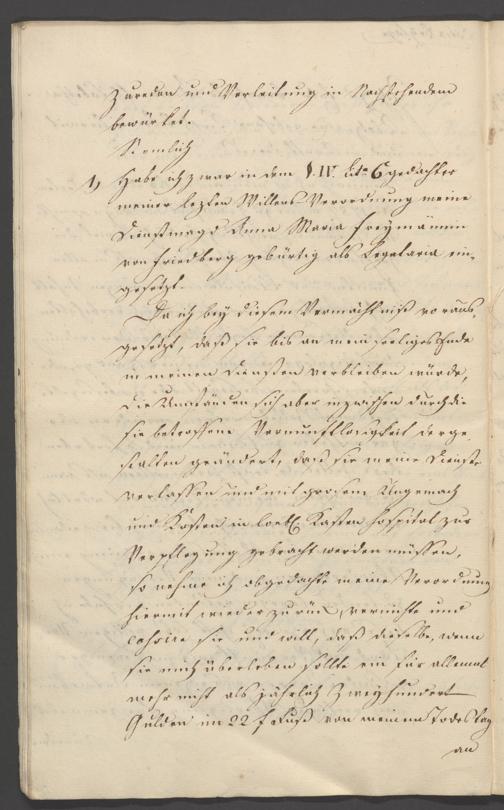 Zureden und Verleitung in Nachstehendem
bewürket.
Nemlich
1) Habe ich zwar in dem §. IV. Lit. 6 gedachter
meiner lezten Willens Verordnung meine
Dienstmagd Anna Maria Freymännin
von Friedberg gebürtig als Legataria ein-
gesetzt.
Da ich bey diesem Vermächtniß voraus-
gesetzt, daß sie bis an mein seeliges Ende
in meinen Diensten verbleiben würde,
die Umständen sich aber inzwischen durch die
sie betroffene Vernunftlosigkeit derge-
stalten geändert, daß sie meine Dienste
verlassen und mit grosem Ungemach
und Kosten in löbl. Kasten Hospital zur
Verpflegung gebracht werden müssen,
so nehme ich obgedachte meine Verordnung
hiermit wieder zurück, vernichte und
cassire sie und will, daß dieselbe, wenn
sie mich überleben sollte ein für allemal
mehr nicht als jährlich Zweyhundert
Gulden im 22 f Fuß von meinem Todes Tag
an